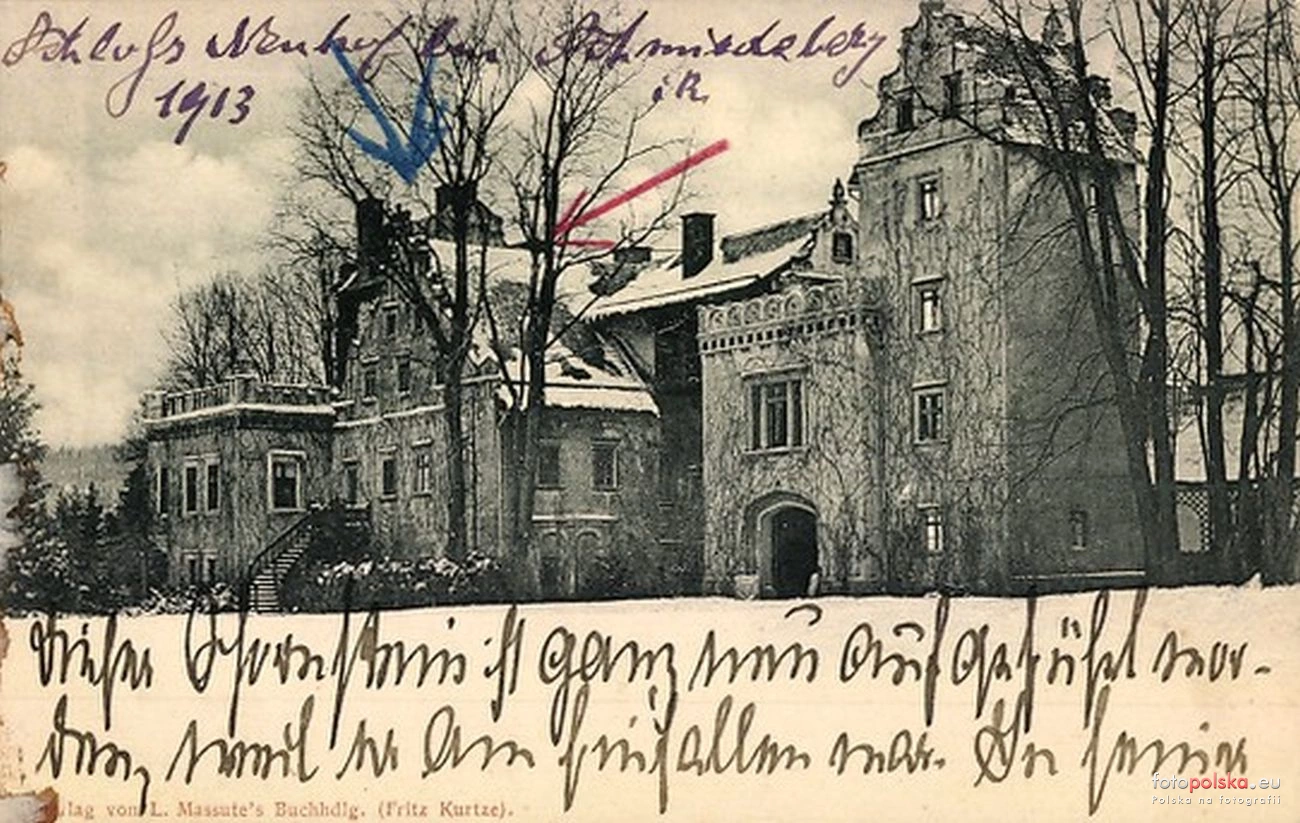 Schloss Neuhof bei Schmiedeberg
1913 i R.
Dieser Schornstein ist ganz neu aufgeführt wor-
den, weil er am Einfallen war. In seiner
Verlag von L. Massute's Buchhdlg. (Fritz Kurtze).
fotopolska.eu
Polska na fotografii